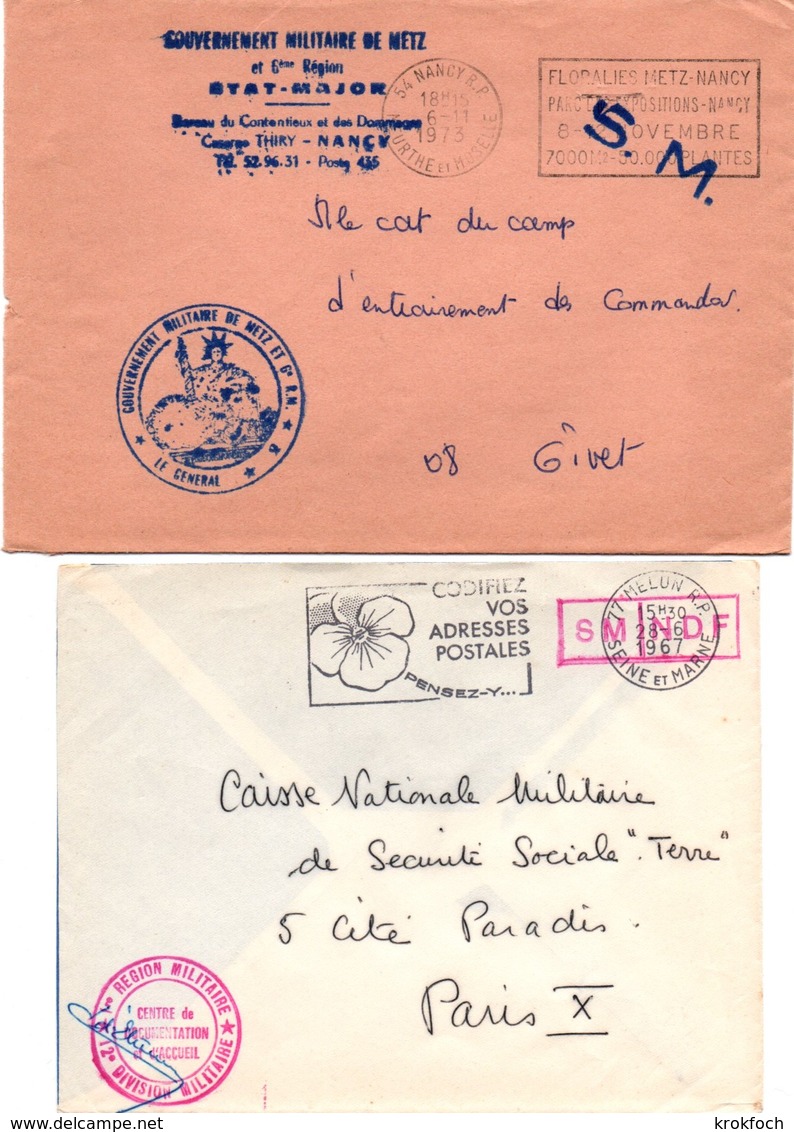 GOUVERNEMENT MILITAIRE DE METZ
et 6ème Région
ETAT-MAJOR
Bureau du Contentieux et des Dommages
Caserne THIRY - NANCY
Tél. 52.96.31 - Poste 435
54 NANCY R.P.
18H15
6-11
1973
MURTHE ET MOSELLE
FLORALIES METZ-NANCY
PARC EXPOSITIONS-NANCY
8- NOVEMBRE
7000M2-50.000 PLANTES
S. M.
Mle cat du camp
d'entrainement des Commandos.
08 Givet
GOUVERNEMENT MILITAIRE DE METZ ET 6e R.M.
LE GENERAL
CODIFIEZ
VOS
ADRESSES
POSTALES
PENSEZ-Y...
SM NDF
77 MELUN R.P.
15H30
28-6
1967
SEINE ET MARNE
Caisse Nationale Militaire
de Sécurité Sociale ". Terre"
5 Cité Paradis.
Paris X
RÉGION MILITAIRE
CENTRE de
DOCUMENTATION
et d'ACCUEIL
2e DIVISION MILITAIRE
© krokfoch